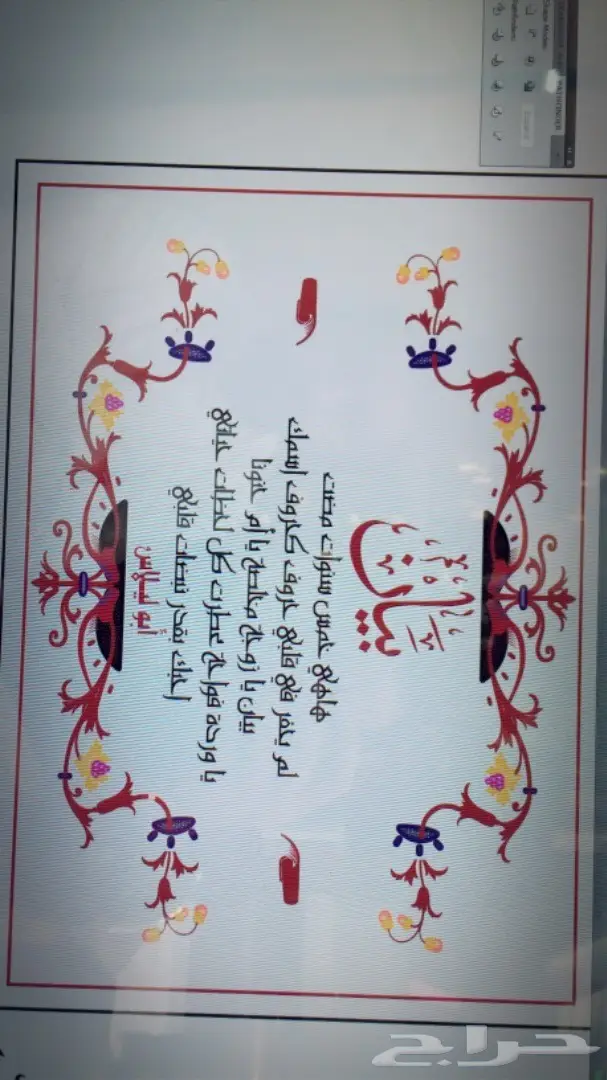 بيان
هاهي خمس سنوات مضت
لم يحفر في قلبي حروف كحروف اسمك
بيان يا زوجة مخلصة يا أم حنونا
يا وردة فواحة عطرت كل لحظات حياتي
احبك بقدر نبضات قلبي
أبو لياس
حراج